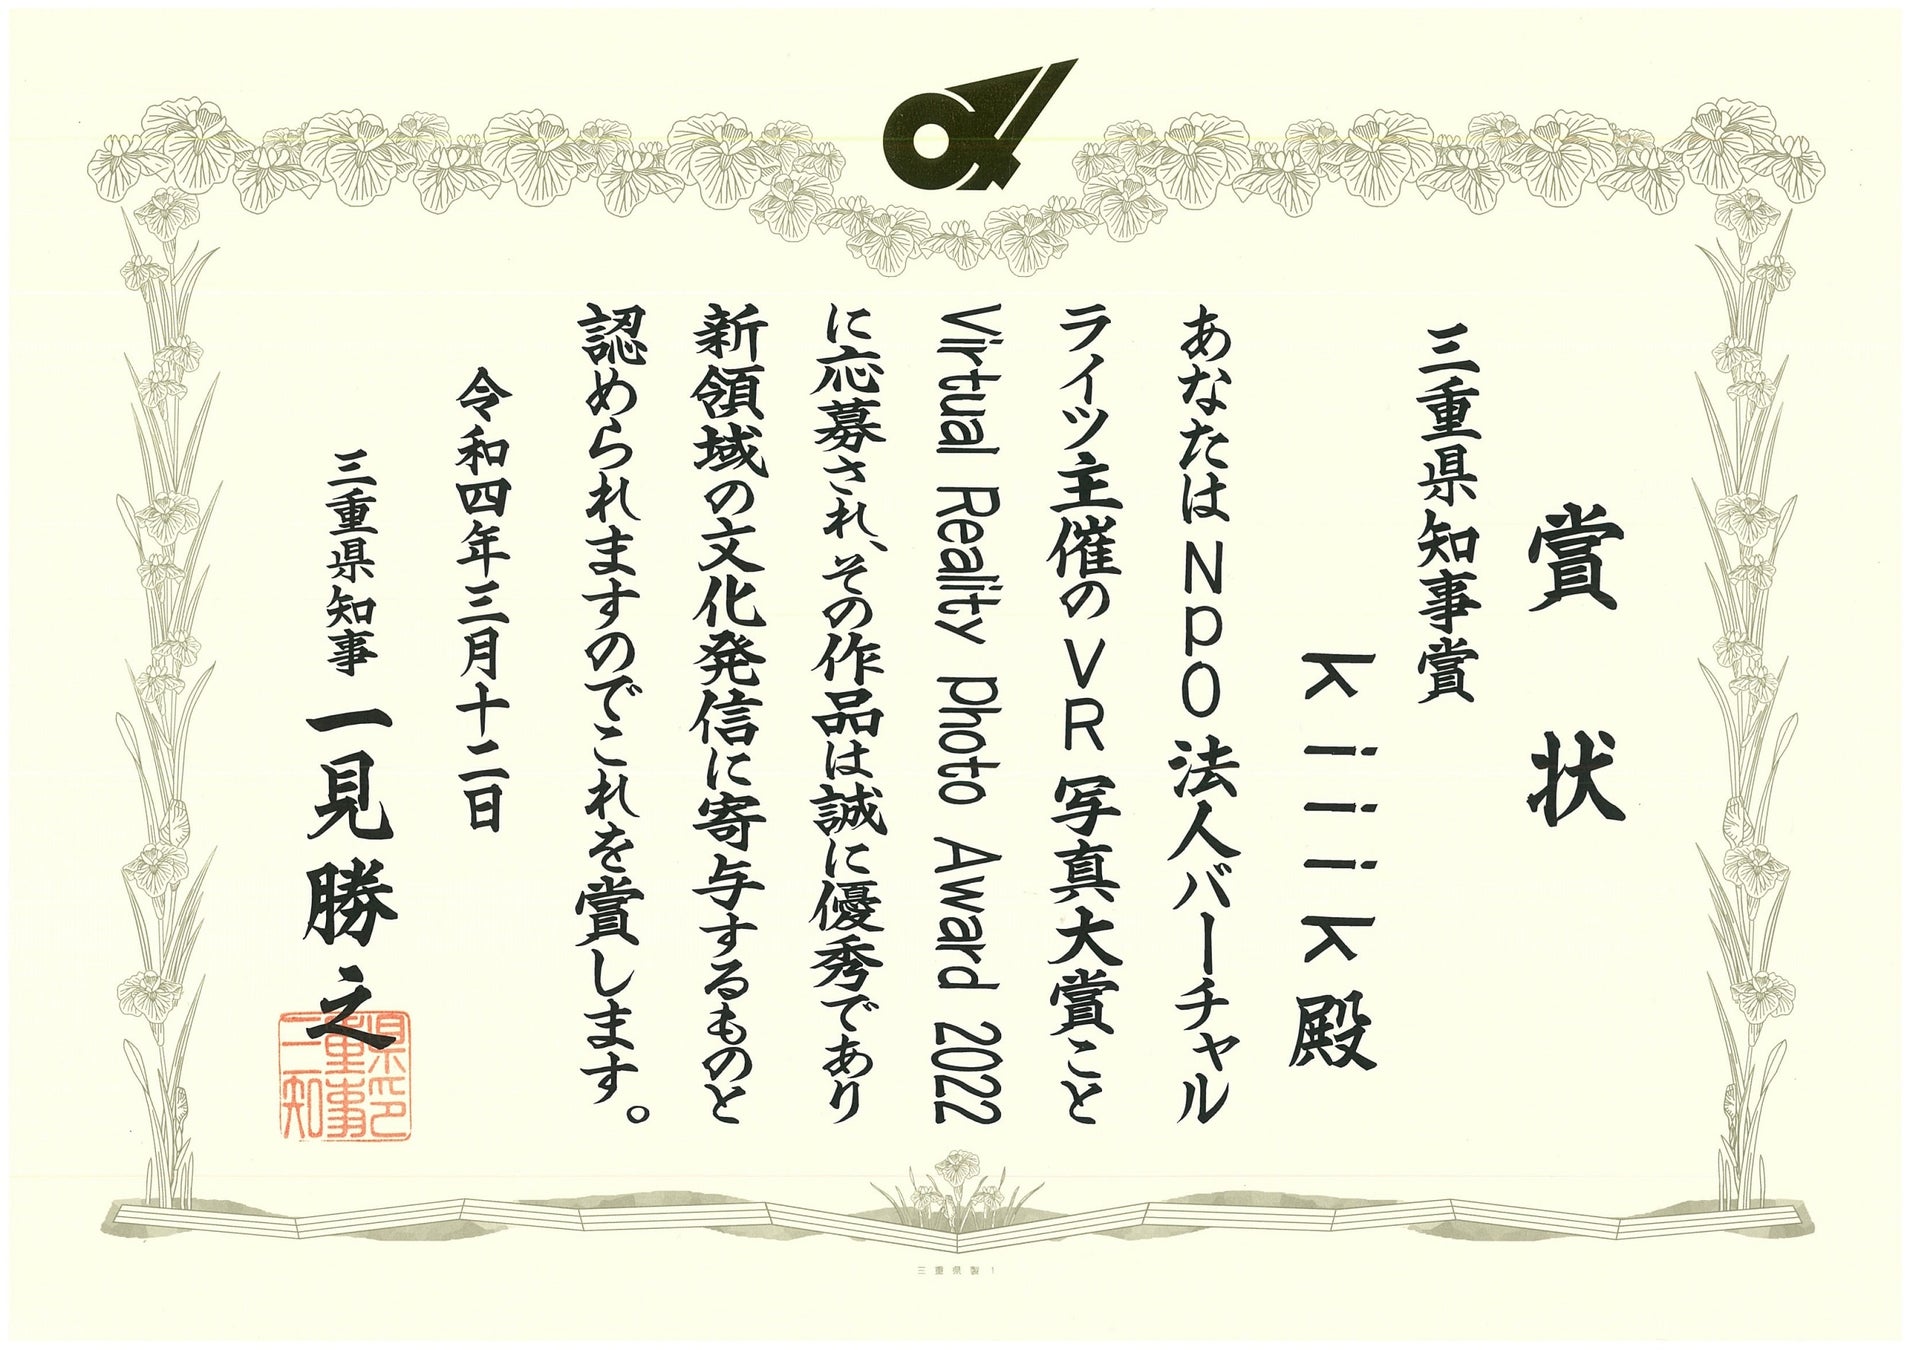 賞状
三重県知事賞
kiiik殿
あなたはNpO法人バーチャル
ライツ主催のVR写真大賞こと
Virtual Reality photo Award 2022
に応募され、その作品は誠に優秀であり
新領域の文化発信に寄与するものと
認められますのでこれを賞します。
令和四年三月十二日
三重県知事 一見勝之
県印
重事
三知
三重県製 1